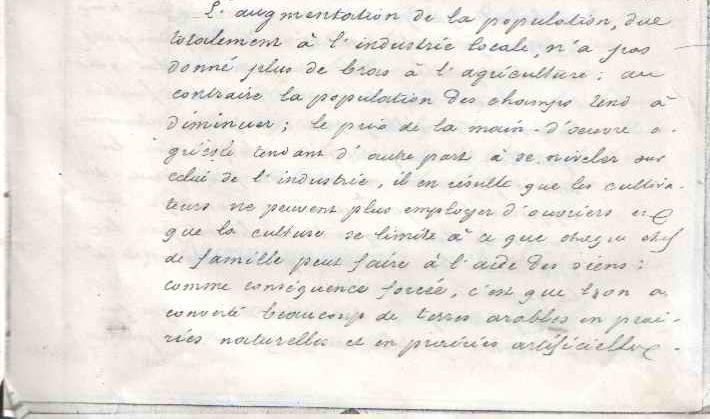 L'augmentation de la population, due
totalement à l'industrie locale, n'a pas
donné plus de bras à l'agriculture ; au
contraire la population des champs tend à
diminuer ; le prix de la main-d'œuvre a-
gricole tendant d'autre part à se niveler sur
celui de l'industrie, il en résulte que les cultiva-
teurs ne peuvent plus employer d'ouvriers et
que la culture se limite à ce que chaque chef
de famille peut faire à l'aide des siens ;
comme conséquence forcée, c'est que l'on a
converti beaucoup de terres arables en prai-
ries naturelles et en prairies artificielles.